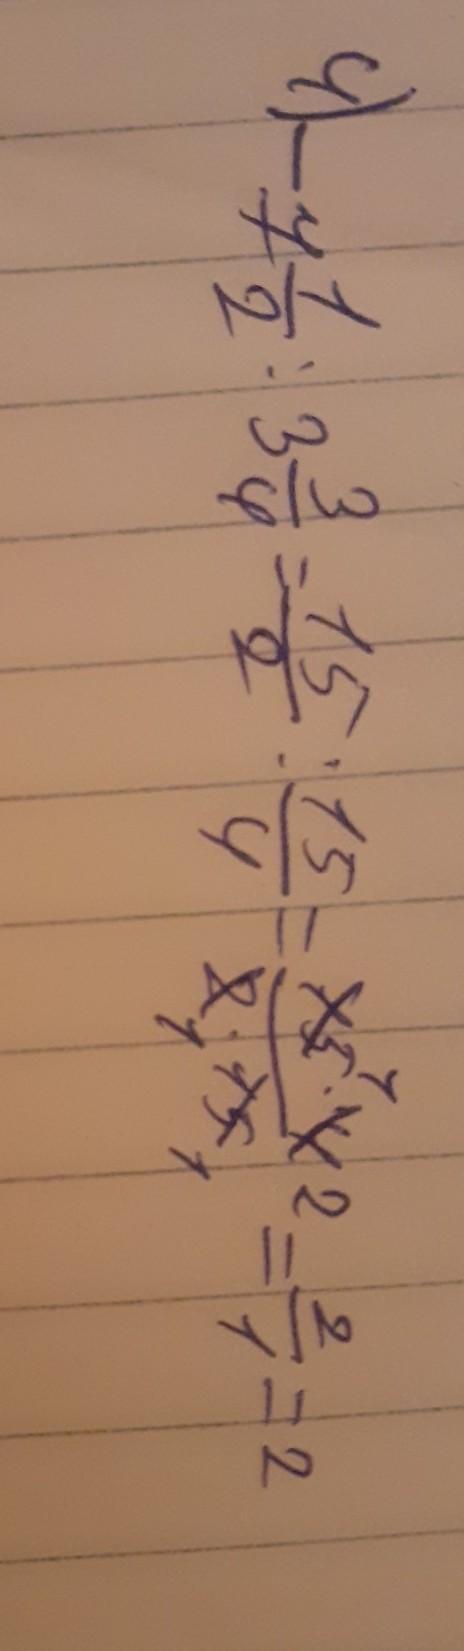 4) -7 1/2 : 3 3/4 = 15/2 : 15/4 = 15 1 · 4 2 / 2 1 · 15 1 = 2/1 = 2